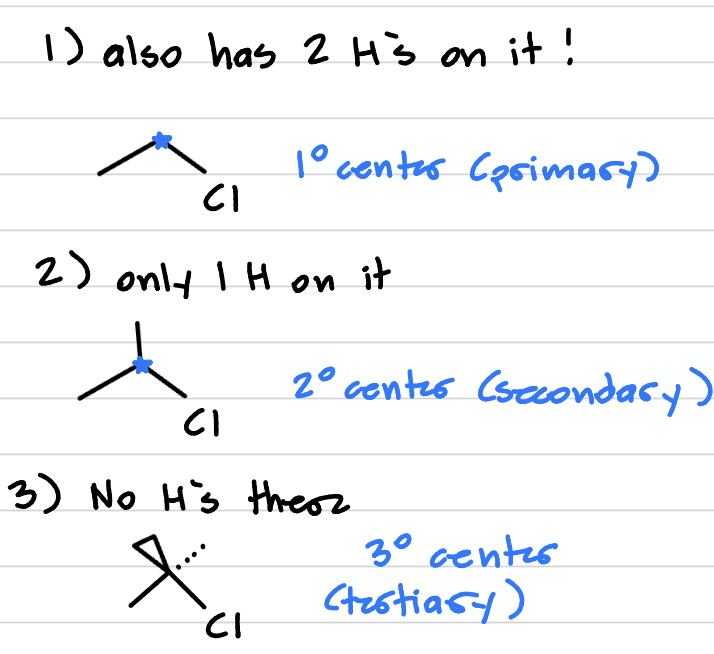 1) also has 2 H's on it!
1° center (primary)
Cl
2) only 1 H on it
2° center (secondary)
Cl
3) No H's there
3° center
(tertiary)
Cl